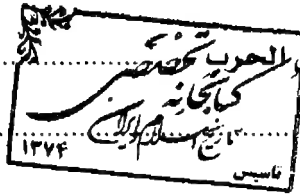 الحرب
کتابخانه تخصصی
تاریخ اسلام و ایران
۱۳۷۴
تاسیس